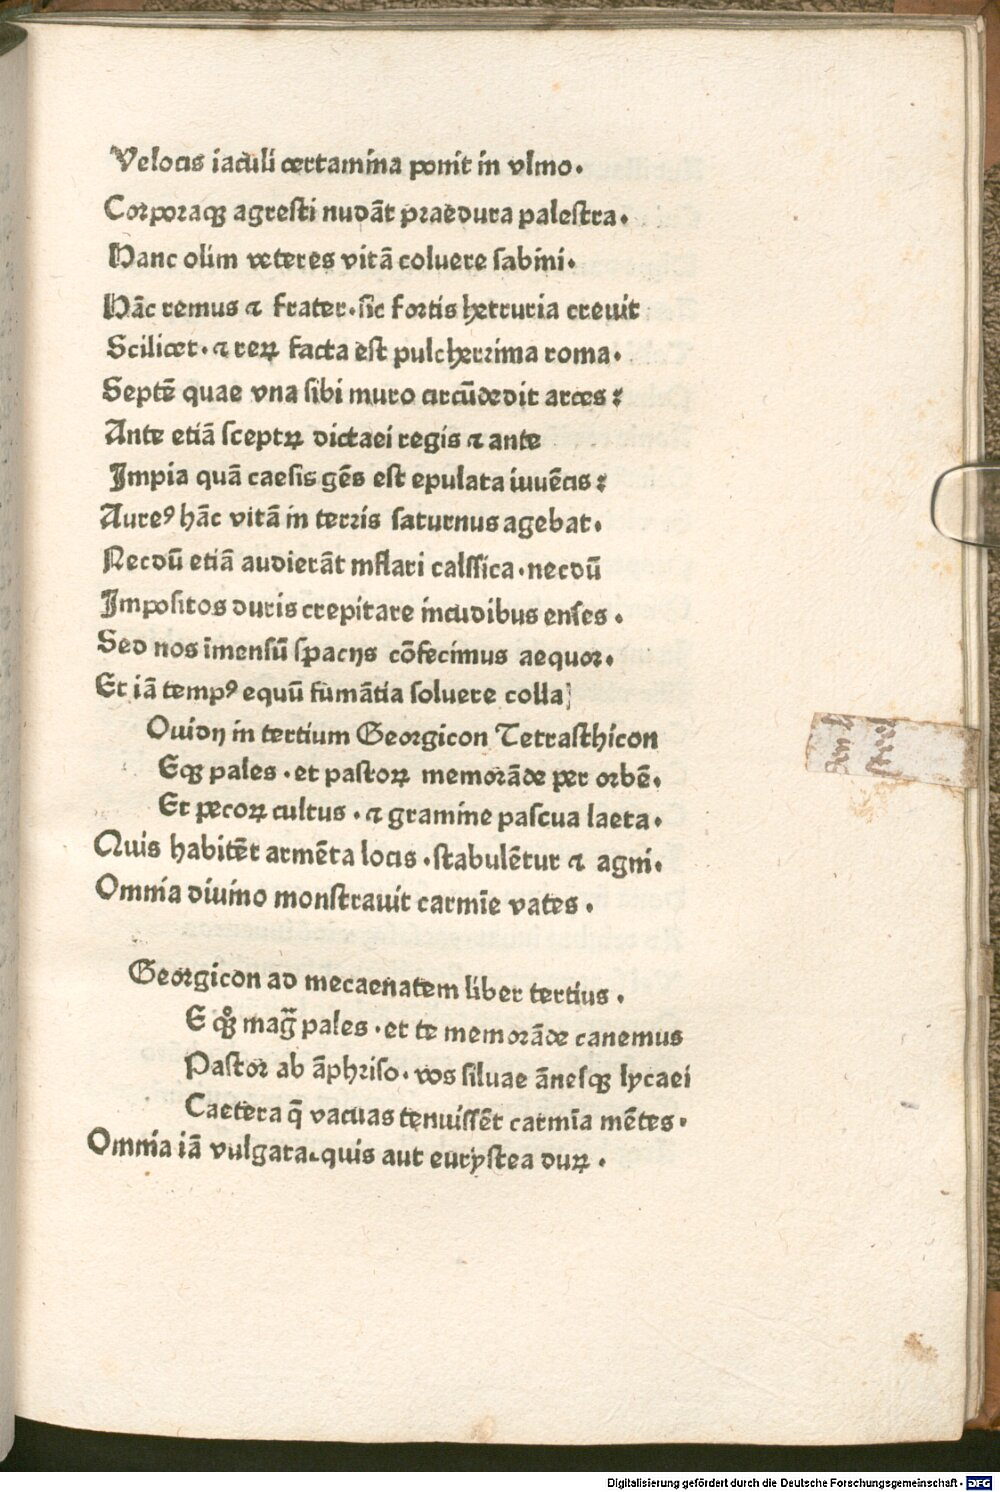 Velocis iaculi certamina ponit in vlmo.
Corporaqꝫ agresti nudāt praedura palestra.
Hanc olim veteres vitā coluere sabini.
Hāc remus ⁊ frater. sic fortis hetruria creuit
Scilicet. ⁊ reꝝ facta est pulcherrima roma.
Septē quae vna sibi muro circūdedit arces :
Ante etiā sceptꝝ dictaei regis ⁊ ante
Impia quā caesis gēs est epulata iuuēcis :
Aureꝰ hāc vitā in terris saturnus agebat.
Necdū etiā audierāt inflari calssica. necdū
Impositos duris crepitare incudibus enses .
Sed nos īmensū spacijs cōfecimus aequor.
Et iā tempꝰ equū fumātia soluere colla
Ouidij in tertium Georgicon Tetrasthicon
Eqꝫ pales . et pastoꝝ memorāde per orbē.
Et pecoꝝ cultus . ⁊ gramine pascua laeta.
Quis habitēt armēta locis . stabulētur ⁊ agni.
Omnia diuino monstrauit carmīe vates .
Georgicon ad mecaenatem liber tertius .
E qꝫ mag̃ pales . et te memorāde canemus
Pastor ab āphriso. vos siluae ānesqꝫ lycaei
Caetera q̄ vacuas tenuissēt carmīa mētes.
Omnia iā vulgata. quis aut eurystea duꝝ .
Digitalisierung gefördert durch die Deutsche Forschungsgemeinschaft - DFG